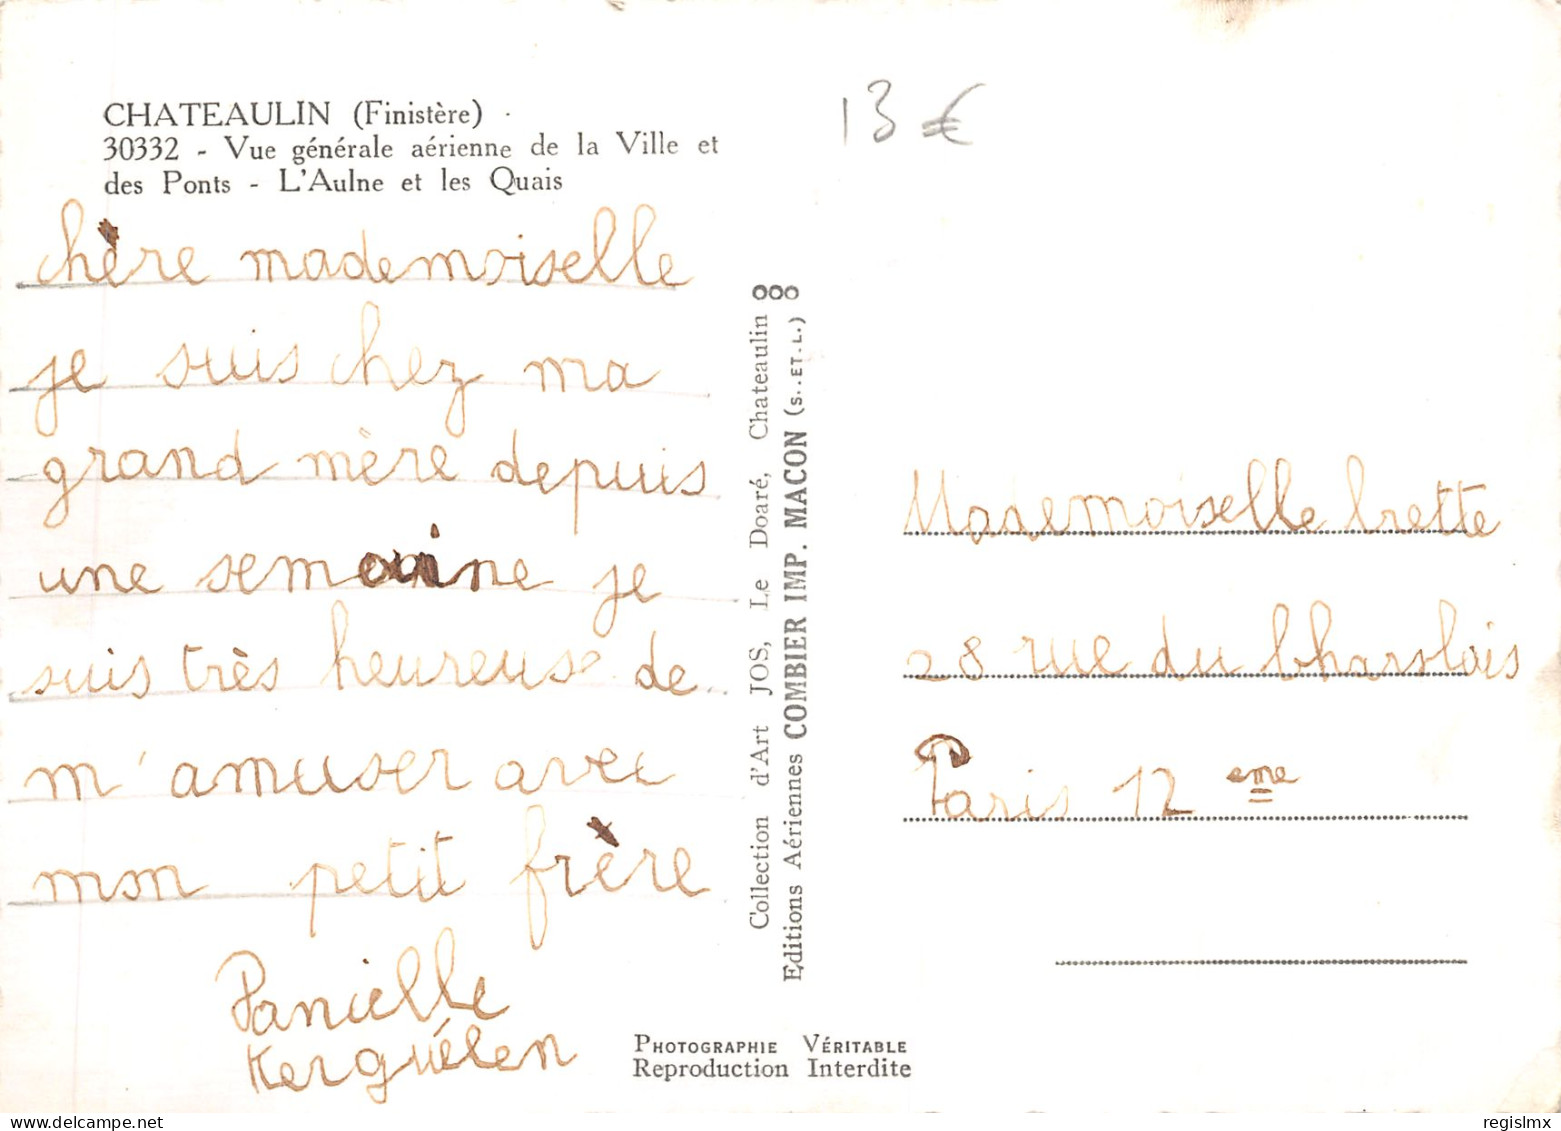 CHATEAULIN (Finistère)
30332 - Vue générale aérienne de la Ville et
des Ponts - L'Aulne et les Quais
13 €
chère mademoiselle
je suis chez ma
grand mère depuis
une semaine je
suis très heureuse de
m'amuser avec
mon petit frère
Danielle
Kerguélen
Collection d'Art JOS, Le Doaré, Chateaulin
Editions Aériennes COMBIER IMP. MACON (S.-ET-L.)
Mademoiselle
28 rue du Charolais
Paris 12 eme
PHOTOGRAPHIE VÉRITABLE
Reproduction Interdite
regislmx